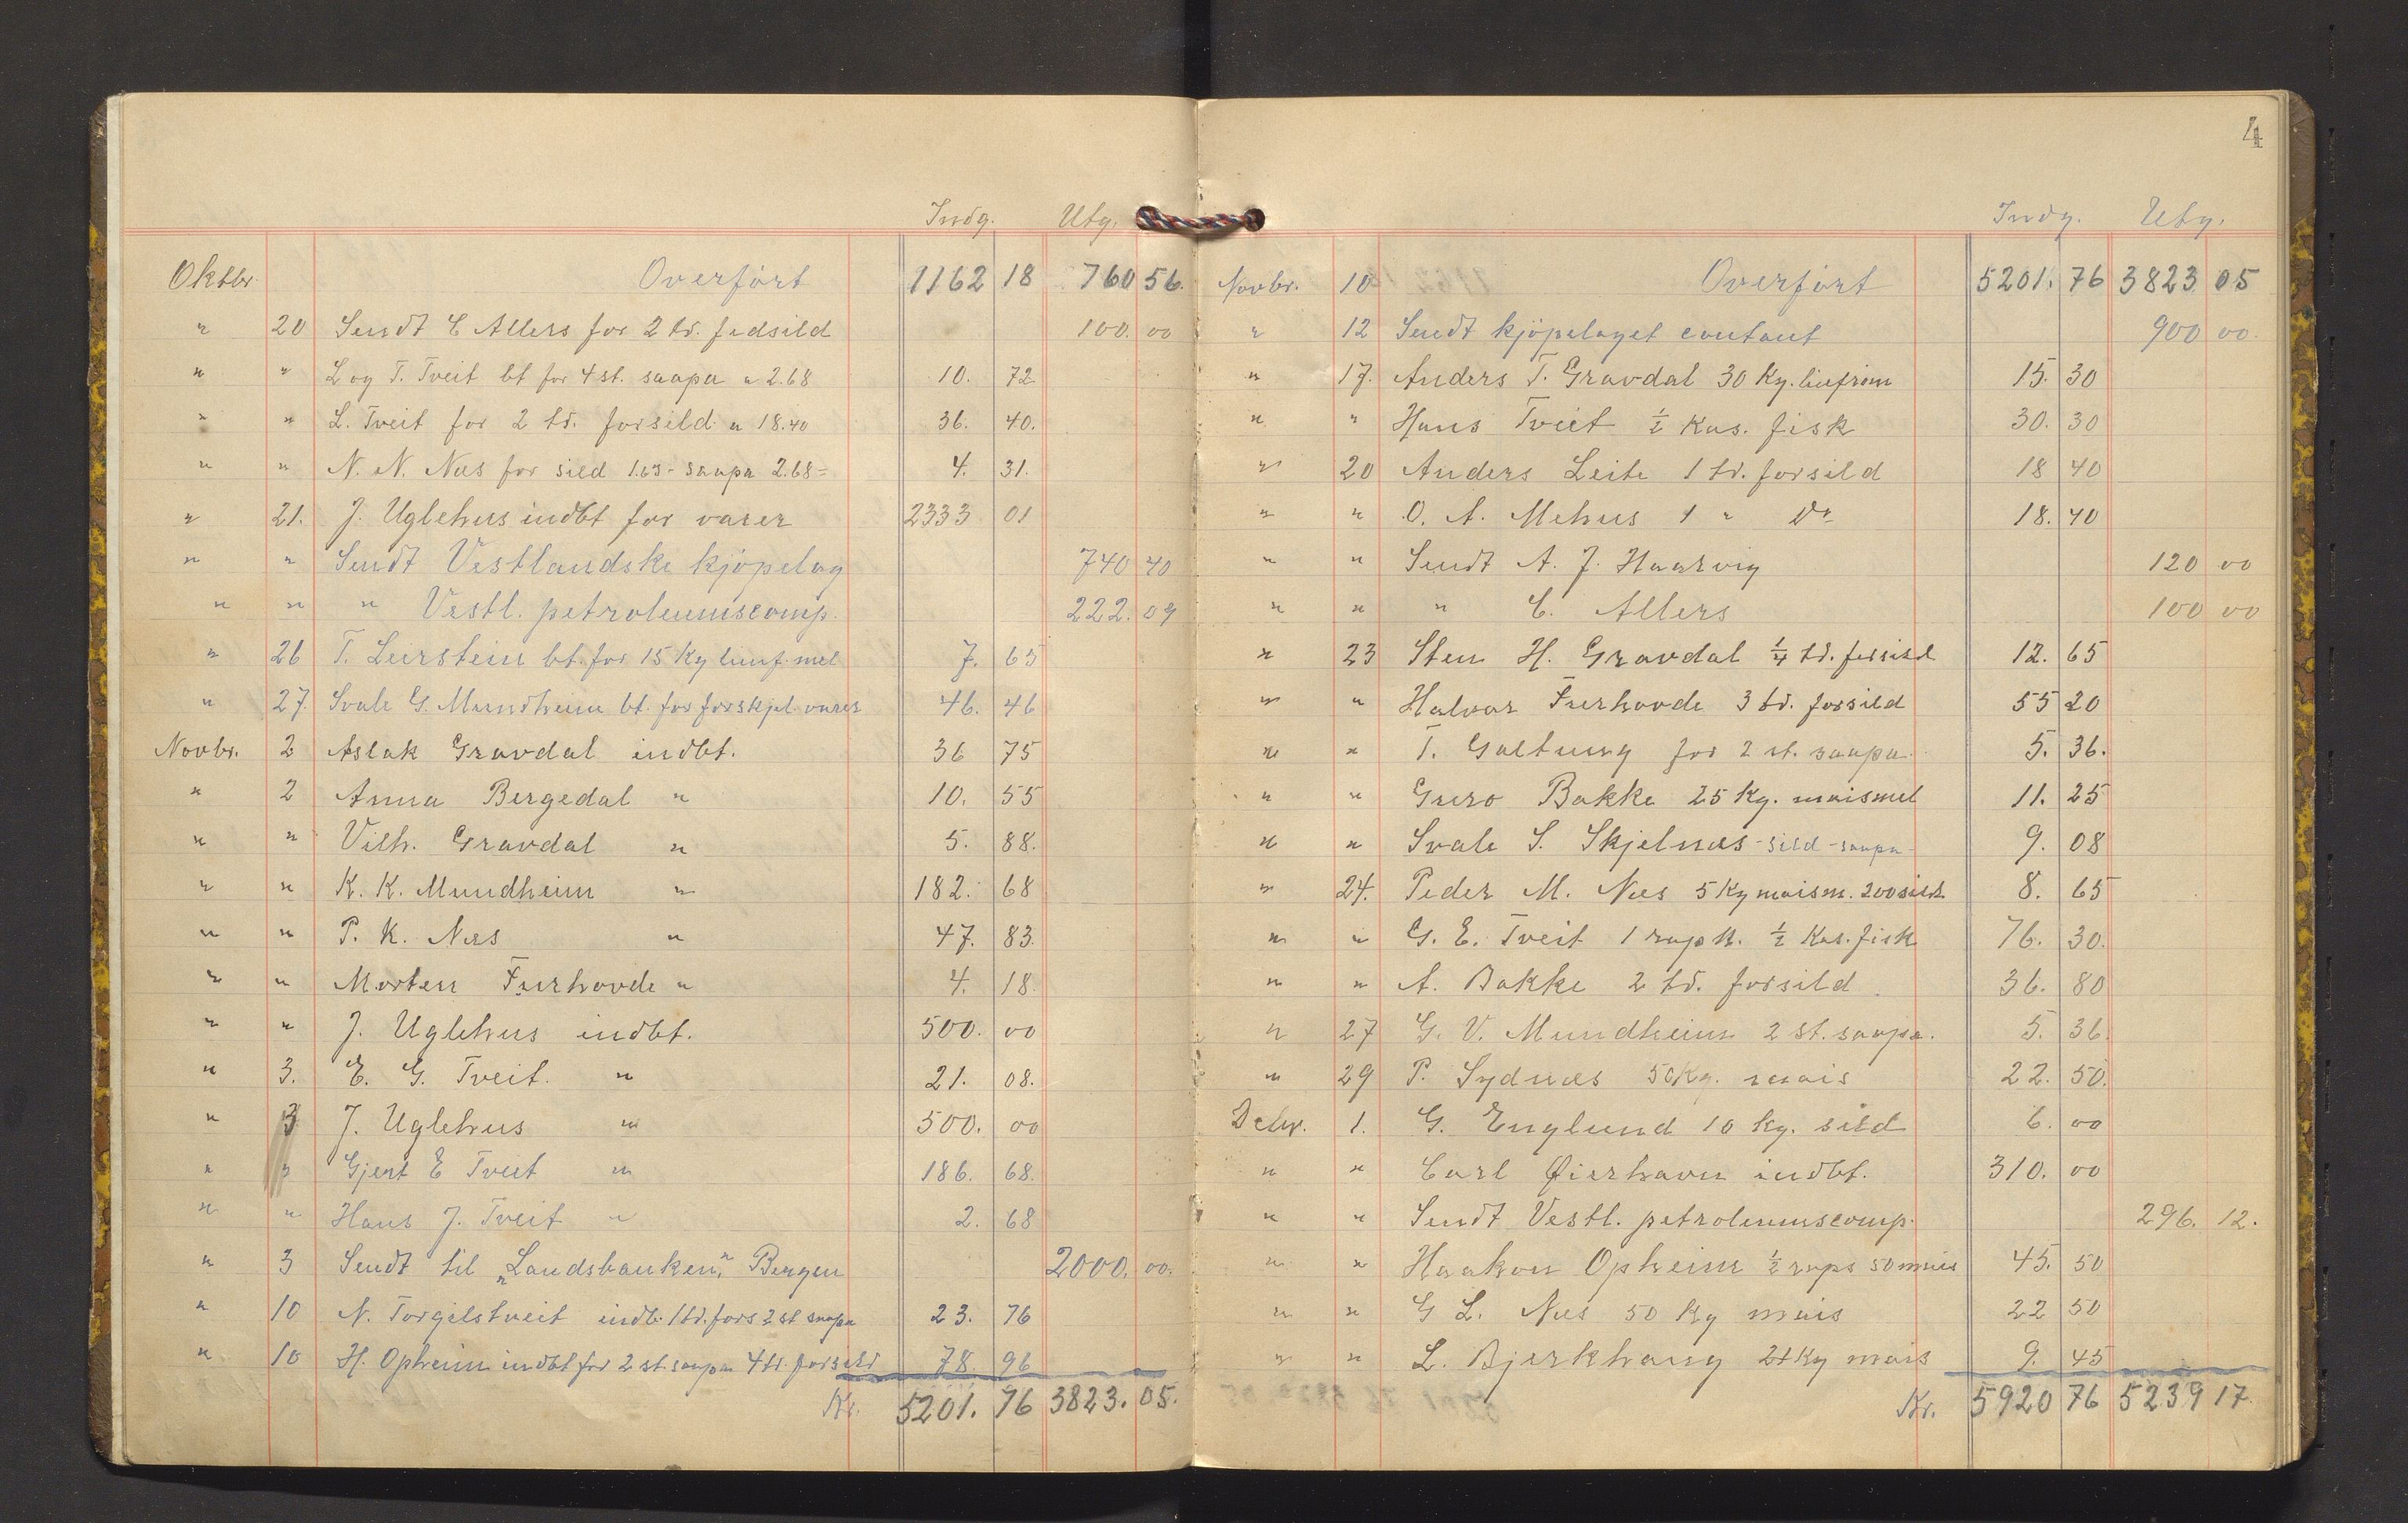 Indg. Utg.
Oktbr. Overført 1162 18 760 56.
" 20 Sendt C Allers for 2 td. fedsild 100. 00
" " L og T. Tveit bt for 4 st. saapa a 2.68 10. 72
" " L. Tveit for 2 td. forsild a 18.40 36. 40.
" " N. N. Næs for sild 1.63 - saapa 2.68 = 4. 31.
" 21. J. Uglehus indbt for varer 2333 01
" " Sendt Vestlandske kjøpelag 740 40
" " " Vestl. petroleumscomp. 222. 09
" 26 T. Leirstein bt. for 15 Kg linf. mel 7. 65
" 27. Svale G. Mundheim bt. for forskjel. varer 46. 46
Novbr. 2 Aslak Gravdal indbt. 36 75
" 2 Anna Bergedal " 10. 55
" " Vilh. Gravdal " 5. 88.
" " K. K. Mundheim " 182. 68
" " P. K. Næs " 47. 83.
" " Morten Furhovde " 4. 18.
" " J. Uglehus indbt. 500. 00
" 3. E. G. Tveit. " 21. 08.
" 3 J. Uglehus " 500. 00
" " Gjert E Tveit " 186. 68.
" " Hans J. Tveit " 2. 68
" 3 Sendt til "Landsbanken," Bergen 2000. 00.
" 10 N. Torgilstveit indb. 1 td. fors 2 st saapa 23. 76
" 10 H. Opheim indbt for 2 st. saapa 4 td. forsild 78. 96
Kr. 5201. 76 3823. 05.
4
Indg. Utg.
Novbr. 10 Overført 5201. 76 3823 05
" 12 Sendt kjøpelaget contant 900 00.
" 17. Anders T. Gravdal 30 Kg. linfrøm 15. 30
" " Hans Tveit ½ Kas. fisk 30. 30
" 20 Anders Leite 1 td. forsild 18 40
" " O. A. Mehus 1 " Do 18. 40
" " Sendt A. J. Haarvig 120 00
" " " C. Allers 100 00
" 23 Sten H. Gravdal ¼ td. fedsild 12. 65
" " Halvor Furhovde 3 td. forsild 55 20
" " T. Galtung for 2 st. saapa. 5. 36.
" " Guro Bakke 25 Kg. maismel 11. 25
" " Svale S. Skjelnæs - sild - saapa - 9. 08
" 24. Peder M. Næs 5 Kg maism. 200 sild 8. 65
" " G. E. Tveit 1 rapsk. ½ Kas. fisk 76. 30.
" " A. Bakke 2 td. forsild. 36. 80
" 27 G. V. Mundheim 2 st. saapa. 5. 36.
" 29 P. Sydnæs 50 Kg. mais 22. 50.
Debr. 1. G. Englund 10 kg. sild 6. 00
" " Carl Øierhavn indbt. 310. 00
" " Sendt Vestl. petroleumscomp. 296. 12.
" " Haakon Opheim ½ raps 50 mais 45. 50
" " G L. Næs 50 Kg mais 22 50
" " L. Bjerkhaug 21 Kg mais 9. 45
Kr. 5920 76 5239 17.